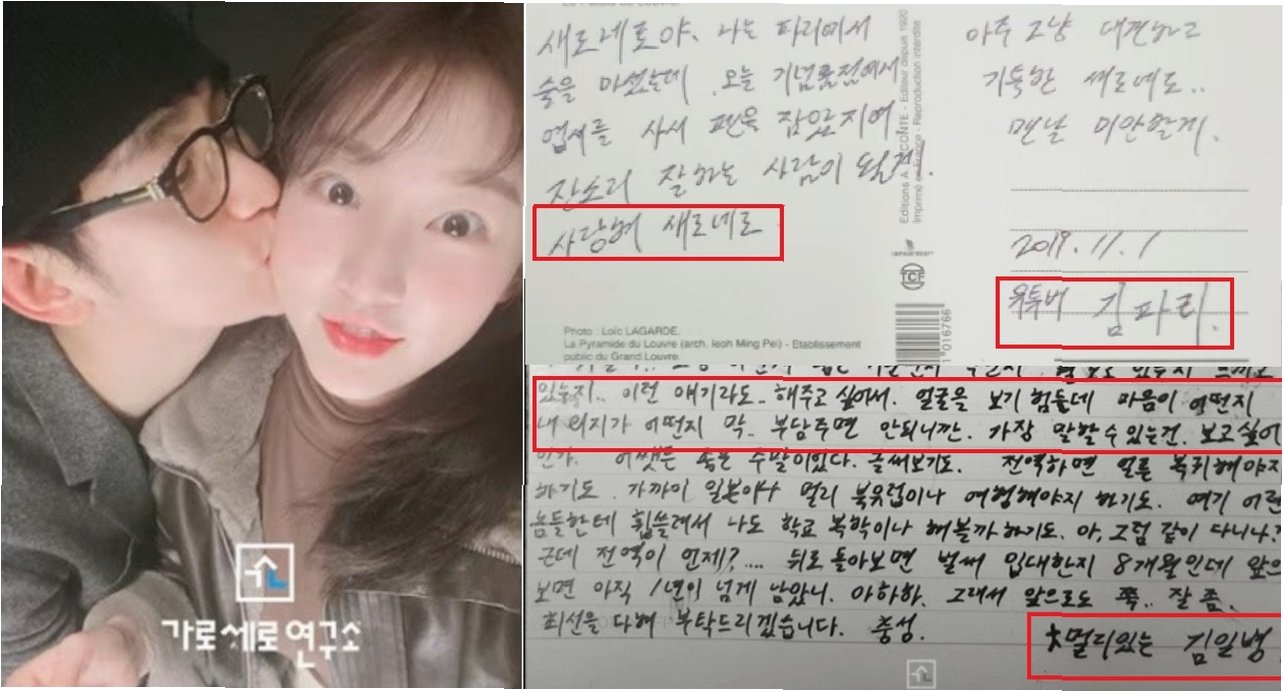 새로네로야. 나는 파리에서
술을 마셨는데. 오늘 기념품점에서
엽서를 사서 펜을 잡은지여.
잔소리 잘하는 사람이 될걸.
사랑해 새로네로
아주 그냥 대견하고
기특한 새로네로..
맨날 미안할게.
2019. 11. 1
유튜버 김파리.
Editions A. LECONTE - Editeur depuis 1920
Imprimé en France - Reproduction interdite
IMPRIM'VERT
TCF
1 016766
Photo : Loïc LAGARDE.
La Pyramide du Louvre (arch. Ieoh Ming Pei) - Etablissement
public du Grand Louvre.
있는지.. 이런 얘기라도.. 해주고 싶어서. 얼굴을 보기 힘들데 마음이 어떤지
내 의지가 어떤지 막. 부담주면 안되니깐. 가장 말할 수 있는건. 보고싶어
인가. 어쨌든 쓰는 수밖이었다. 글써보기도. 전역하면 얼른 복귀해야지
하기도. 가까이 일본이나 멀리 북유럽이나 여행해야지 하기도. 여기 어린
놈들한테 휩쓸려서 나도 학교 복학이나 해볼까 하기도. 아, 그럼 같이 다니나?
근데 전역이 언제?.... 뒤로 돌아보면 벌써 입대한지 8개월인데 앞으
보면 아직 1년이 넘게 남았니. 아하하. 그래서 앞으로도 쭉.. 잘 좀.
최선을 다해 부탁드리겠습니다. 충성.
멀리있는 김일병
가로세로연구소